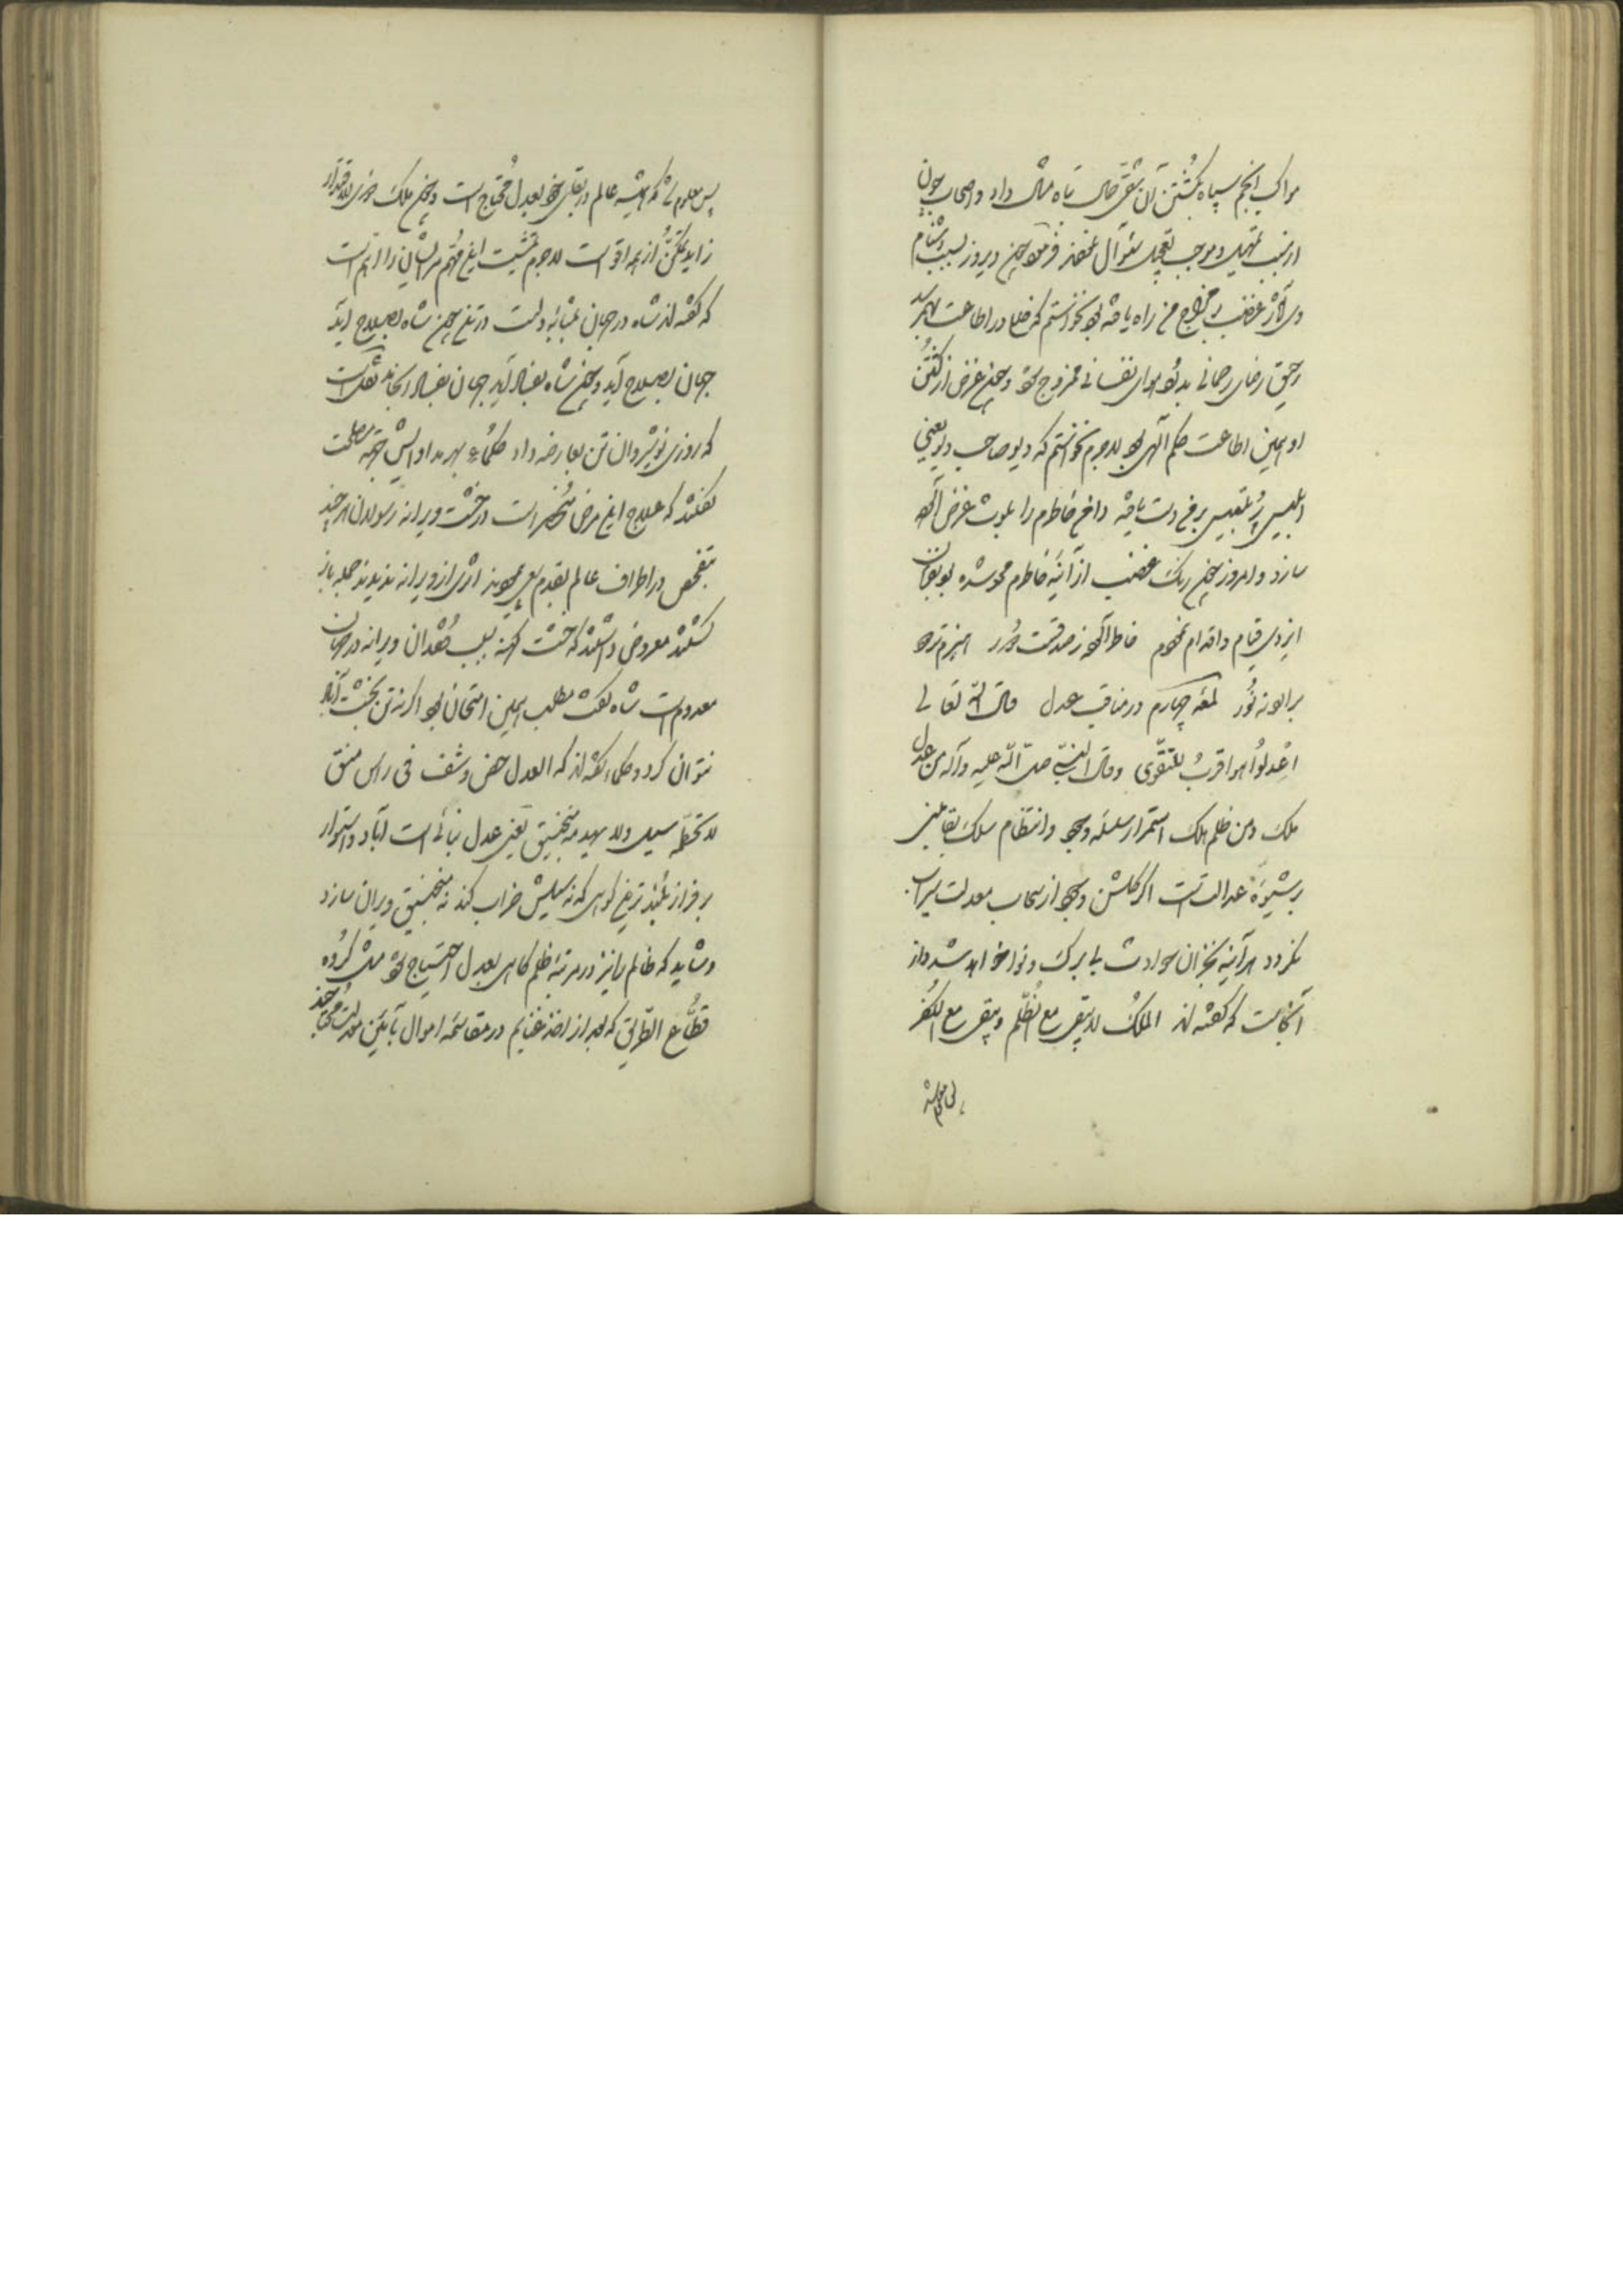 مواکب انجم سپاه بکشتن آن شقی حال تباه مثال داد و اصحاب چون
از سبب تمهیل و موجب تعجیل سؤال نمودند فرمود چون دیروز بسبب دشنام
وی آثار غضب بر مزاج من راه یافته بود نخواستم که خلل در اطاعت
رحیق رضای رحمانی بدرد هوای نفسانی ممزوج شود و چون غرض از کشتن
او همین اطاعت حکم الهی بود لاجرم نخواستم که دیو صاحب ریو یعنی
ابلیس پر تلبیس بر من دست یافته دامن خاطرم را بلوث غرض آلوده
سازد و امروز چون زنگ غضب از آینه خاطرم محو شده بود بفرمان
ایزدی قیام و اقدام نمودم
برای نور لمعه چهارم در مناقب عدل قال الله تعالی
اعدلوا هو اقرب للتقوی و قال النبی صلی الله علیه و آله من عدل
ملک و من ظلم هلک استمرار سلسله وجود و انتظام سلک بقا مبنی
بر شیوه عدالتست اگر گلشن وجود از سحاب معدلت سیراب
نگردد هر آینه بخزان حوادث بی برک و نوا خواهد شد و از
آنجاست که گفته اند الملک لا یبقی مع الظلم و یبقی مع الکفر
پس معلوم شد که همیشه عالم در بقای خود بعدل محتاج است و چون ملک
زاید تمکن از همه اقوی است لاجرم تمشیت این مهم مر ایشان را الزم است
که گفته اند شاه در جهان بمثابه دلست در تن چون شاه بصلاح آید
جهان بصلاح آید و چون شاه بفساد آید جهان بفساد انجامد نقلست
که روزی نوشیروان تن بعارضه داد حکماء بهر مداوایش مصلحت
گفتند که علاج این مرض منحصر است در خشت ویرانه رسولان هر چند
بتفحص در اطراف عالم بقدم سعی پوییدند اثری از ویرانه ندیدند جمله باز
گشتند معروض داشتند که خشت کهنه بسبب فقدان ویرانه در جهان
معدوم است شاه گفت مطلب همین امتحان بود اگر نه تن بخشت
نتوان کرد و حکماء گفته اند که العدل حصن وشیق فی راس منیق
لا تحطمه سیل و لا یهدمه منجنیق یعنی عدل بنائی است آباد و استوار
بر فراز بلندترین کوهی که نه سیلش خراب کند نه منجنیق ویران سازد
و شاید که ظالم را نیز در مرتبه ظلم گاهی بعدل احتیاج شود مثل گروه
قطاع الطریق که بعد از اخذ غنایم در مقاسمه اموال بآیین معدلت محتاجند